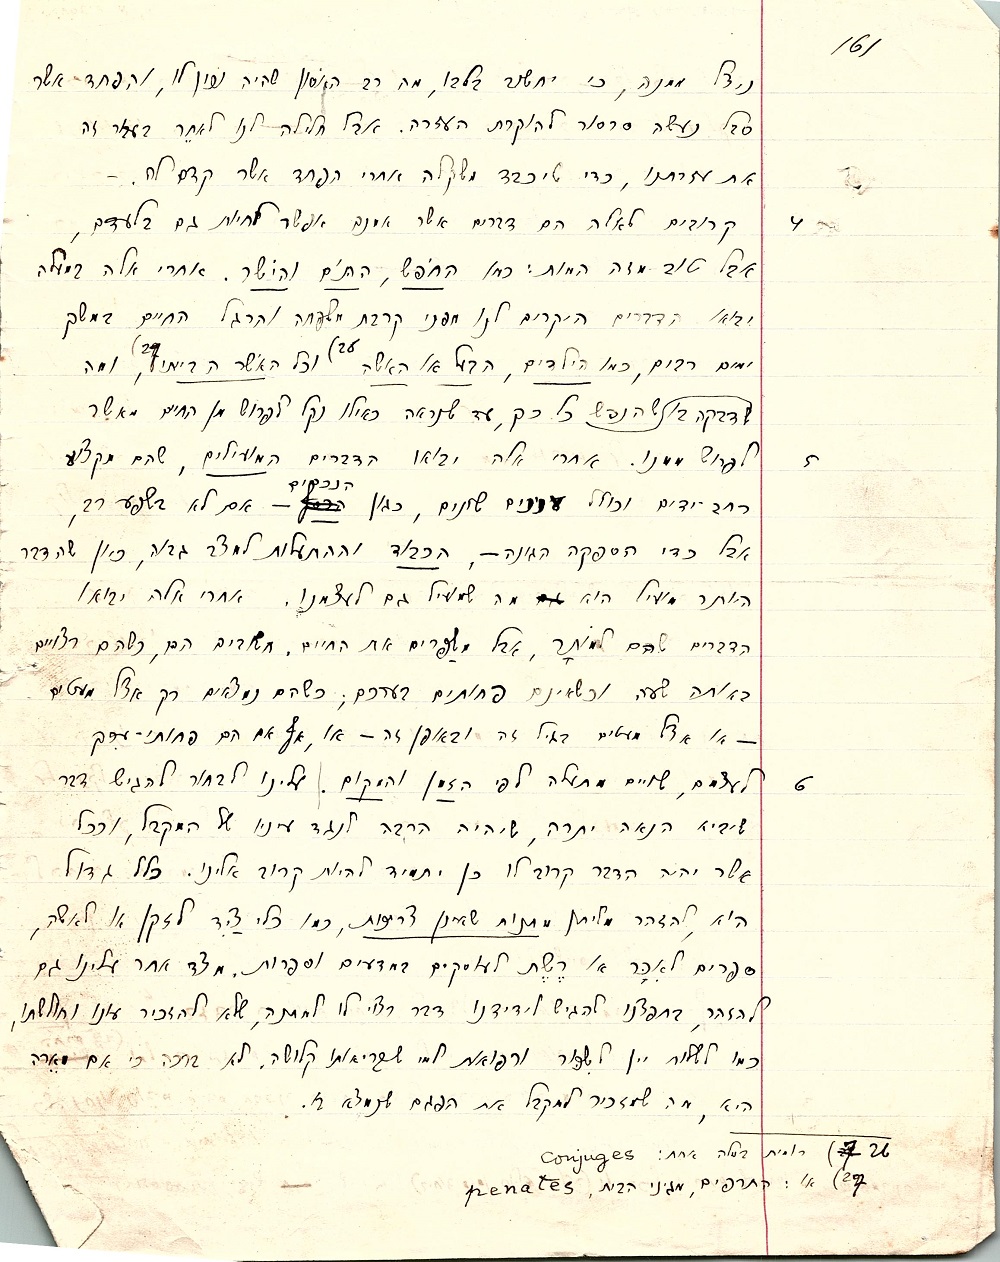 161
ניצל ממנה, כי יחשוב בלבו, מה רב האסון שהיה נכון לו, והפחד אשר
סבל נעשה סרסור להוקרת העזרה. אבל חלילה לנו לאחר בעבור זה
את עזרתנו, כדי שיכבד משקלה אחרי הפחד אשר קדם לה. –
4 קרובים לאלה הם דברים אשר אמנם אפשר לחיות גם בלעדם,
אבל טוב מזה המות: כמו החפש, התם והישר. אחרי אלה במעלה
יבואו הדברים היקרים לנו מפני קרבת משפחה והרגל החיים במשך
ימים רבים, כמו הילדים, הבעל או האשה 26) וכל האשר הביתי 27), ומה
שדבקה בו הנפש כל כך, עד שנראה כאילו נקל לפרוש מן החיים מאשר
5 לפרוש ממנו. אחרי אלה יבואו הדברים המועילים, שהם מקצוע
רחב-ידים וכולל ענינים שונים, כגון הנכסים – אם לא בשפע רב,
אבל כדי הספקה הגונה –, הכבוד וההתעלות למצב גבוה, כיון שהדבר
היותר מועיל הוא מה שמועיל גם לעצמנו. אחרי אלה יבואו
הדברים שהם למותר, אבל משפרים את החיים. חשובים הם, כשהם רצויים
באותה שעה וכשאינם פחותים בערכם; כשהם נמצאים רק אצל מעטים
– או אצל מעטים בגיל זה ובאופן זה – או, אף אם הם פחותי-ערך
6 לעצמם, שוויים מתעלה לפי הזמן והמקום. עלינו לבחור להגיש דבר
שיביא הנאה יתרה, שיהיה הרבה לנגד עיניו של המקבל, וככל
אשר יהיה הדבר קרוב לו כן יתמיד להיות קרוב אלינו. כלל גדול
הוא להזהר מליתן מתנות שאינן צריכות, כמו כלי ציד לזקן או לאשה,
ספרים לאכר או רשת לעוסקים במדעים וספרות. מצד אחר עלינו גם
להזהר, בחפצנו להגיש לידידנו דבר רצוי לו למתנה, שלא להזכיר עונו וחולשתו,
כמו לשלוח יין לשכור ורפואות למי שבריאותו קלושה. לא ברכה כי אם מארה
היא, מה שמזכיר למקבל את הפגם שנמצא בו.
26) רומית במלה אחת: conjuges
27) או: התרפים, מגיני הבית, penates